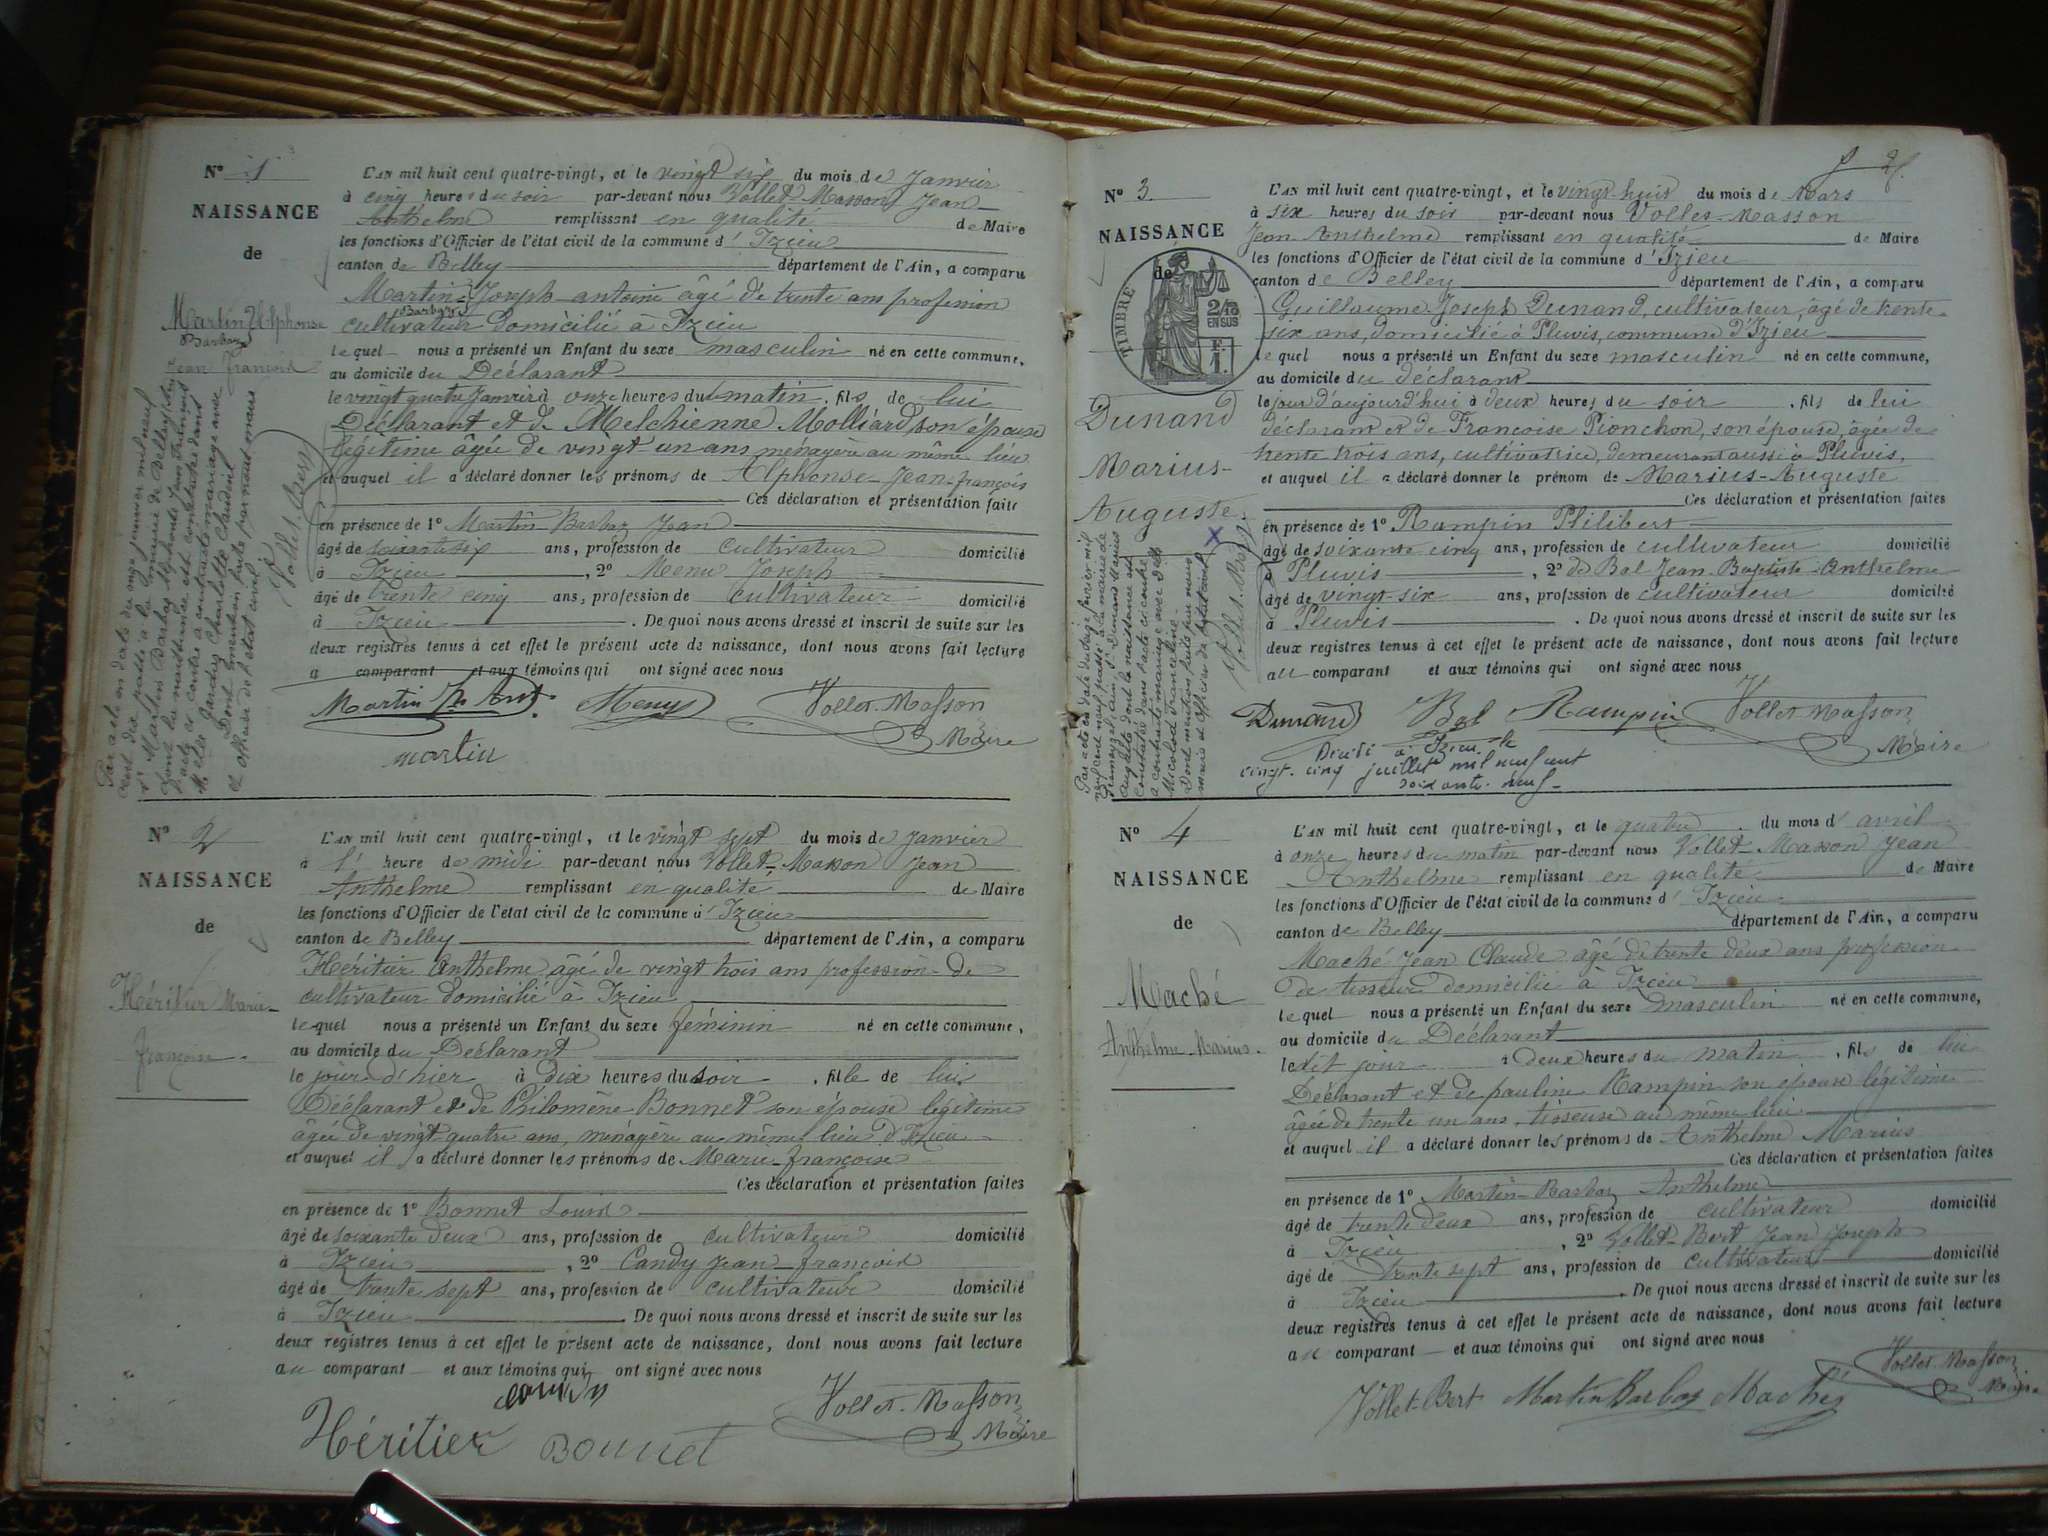 Nº 1
NAISSANCE
de
Martin Alphonse
Barbaz
Jean François
L'AN mil huit cent quatre-vingt, et le vingt six du mois de Janvier
à cinq heures du soir par-devant nous Vollet-Masson Jean
Anthelme remplissant en qualité de Maire
les fonctions d'Officier de l'état civil de la commune d'Izieu
canton de Belley département de l'Ain, a comparu
Martin-Joseph-antoine âgé de trente ans profession
Barbaz
cultivateur domicilié à Izieu
lequel nous a présenté un Enfant du sexe masculin né en cette commune,
au domicile du Déclarant
le vingt quatre Janvier à onze heures du matin, fils de lui
Déclarant et de Melchienne Molliard, son épouse
légitime âgée de vingt un ans ménagère au même lieu
et auquel il a déclaré donner les prénoms de Alphonse Jean-françois
Ces déclaration et présentation faite
en présence de 1º Martin-Barbaz Jean
âgé de soixante six ans, profession de cultivateur domicilié
à Izieu, 2º Menu Joseph
âgé de trente cinq ans, profession de cultivateur domicilié
à Izieu. De quoi nous avons dressé et inscrit de suite sur les
deux registres tenus à cet effet le présent acte de naissance, dont nous avons fait lecture
a comparant et aux témoins qui ont signé avec nous
Vollet-Masson
Maire
martin
Par acte en date du onze janvier mil neuf
cent dix passé à la mairie de Belley
sr Martin Barbaz Alphonse Jean François
dont la naissance est constatée dans
l'acte ci contre a contracté mariage avec
Charlotte Claudine
Dont mention faite par nous maire
et officier de l'état civil
Nº 2
NAISSANCE
de
Héritier Marie-
françoise
L'AN mil huit cent quatre-vingt, et le vingt sept du mois de Janvier
à l' heure de midi par-devant nous Vollet-Masson Jean
Anthelme remplissant en qualité de Maire
les fonctions d'Officier de l'état civil de la commune d'Izieu
canton de Belley département de l'Ain, a comparu
Héritier Anthelme âgé de vingt trois ans profession de
cultivateur domicilié à Izieu
lequel nous a présenté un Enfant du sexe féminin né en cette commune,
au domicile du Déclarant
le jour d'hier à dix heures du soir, fille de lui
Déclarant et de Philomène Bonnet son épouse légitime
âgée de vingt quatre ans, ménagère au même lieu d'Izieu
et auquel il a déclaré donner les prénoms de Marie-françoise
Ces déclaration et présentation faites
en présence de 1º Bonnet Louis
âgé de soixante deux ans, profession de cultivateur domicilié
à Izieu, 2º Candy Jean françois
âgé de trente sept ans, profession de cultivateur domicilié
à Izieu. De quoi nous avons dressé et inscrit de suite sur les
deux registres tenus à cet effet le présent acte de naissance, dont nous avons fait lecture
au comparant et aux témoins qui ont signé avec nous
Héritier Bonnet Vollet-Masson
Maire
Nº 3.
NAISSANCE
de
TIMBRE
2/10
EN SUS
Dunand
Marius-
Auguste
L'AN mil huit cent quatre-vingt, et le vingt-huit du mois de Mars
à six heures du soir par-devant nous Vollet-Masson
Jean-Anthelme remplissant en qualité de Maire
les fonctions d'Officier de l'état civil de la commune d'Izieu
canton de Belley département de l'Ain, a comparu
Guillaume Joseph Dunand, cultivateur, âgé de trente-
six ans, domicilié à Pluvis, commune d'Izieu
lequel nous a présenté un Enfant du sexe masculin né en cette commune,
au domicile du déclarant
le jour d'aujourd'hui à deux heures du soir, fils de lui
déclarant et de Françoise Pionchon, son épouse, âgée de
trente trois ans, cultivatrice, demeurant aussi à Pluvis,
et auquel il a déclaré donner le prénom de Marius-Auguste
Ces déclaration et présentation faites
en présence de 1º Rampin Philibert
âgé de soixante cinq ans, profession de cultivateur domicilié
à Pluvis, 2º de Bal Jean-Baptiste-Anthelme
âgé de vingt-six ans, profession de cultivateur domicilié
à Pluvis. De quoi nous avons dressé et inscrit de suite sur les
deux registres tenus à cet effet le présent acte de naissance, dont nous avons fait lecture
au comparant et aux témoins qui ont signé avec nous
Dunand Bal Rampin Vollet-Masson
Maire
Décédé à Izieu le
vingt-cinq juillet mil neuf cent
soixante-neuf
Nº 4
NAISSANCE
de
Maché
Anthelme-Marius.
L'AN mil huit cent quatre-vingt, et le quatre du mois d'avril
à onze heures du matin par-devant nous Vollet Masson Jean
Anthelme remplissant en qualité de Maire
les fonctions d'Officier de l'état civil de la commune d'Izieu
canton de Belley département de l'Ain, a comparu
Maché Jean Claude âgé de trente deux ans profession
de tisseur domicilié à Izieu
lequel nous a présenté un Enfant du sexe masculin né en cette commune,
au domicile du Déclarant
le dit jour à deux heures du matin, fils de lui
Déclarant et de pauline Rampin son épouse légitime
âgée de trente un ans tisseuse au même lieu
et auquel il a déclaré donner les prénoms de Anthelme Marius
Ces déclaration et présentation faites
en présence de 1º Martin-Barbaz Anthelme
âgé de trente deux ans, profession de cultivateur domicilié
à Izieu, 2º Vollet-Bert Jean Joseph
âgé de trente sept ans, profession de cultivateur domicilié
à Izieu. De quoi nous avons dressé et inscrit de suite sur les
deux registres tenus à cet effet le présent acte de naissance, dont nous avons fait lecture
au comparant et aux témoins qui ont signé avec nous
Vollet-Bert Martin Barbaz Maché Vollet-Masson
Maire